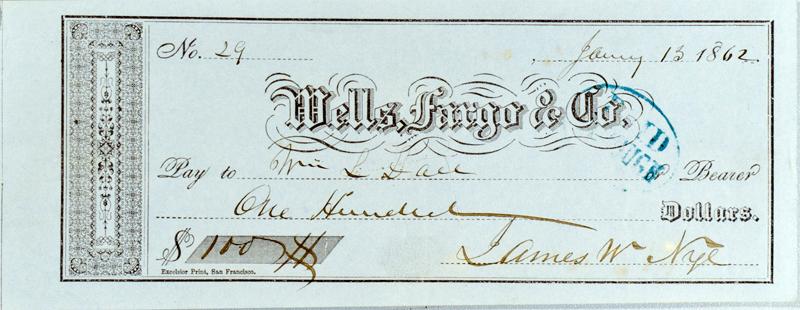 No. 29 , Jany 13 1862
Wells, Fargo & Co.
Pay to Wm L Dall or Bearer
One Hundred Dollars.
$ 100
James W Nye
Excelsior Print, San Francisco.